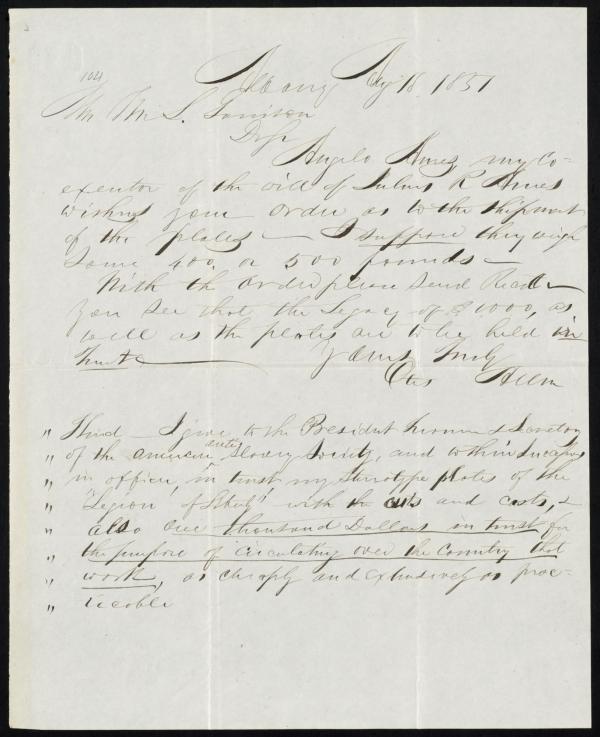 Albany Aug 18. 1851
Mr Wm L. Garrison
Dr Sir
Angelo Ames my Co-
executor of the will of Julius R Ames
wishes your order as to the shipment
of the plates — I suppose they weigh
some 400, or 500 pounds —
With the order please send Receipt
You see that the Legacy of $1000, as
well as the plates are to be held in
trust
Yours truly
Otis Allen
" Third — I give to the President Treasurer & Secretary
" of the american anti slavery Society, and to their Successors
" in office, in trust my Stereotype plates of the
" "Legion of Liberty" with the cuts and casts, &
" also One thousand Dollars in trust for
" the purpose of circulating over the Country that
" work, as cheaply and extensively as prac-
" ticable